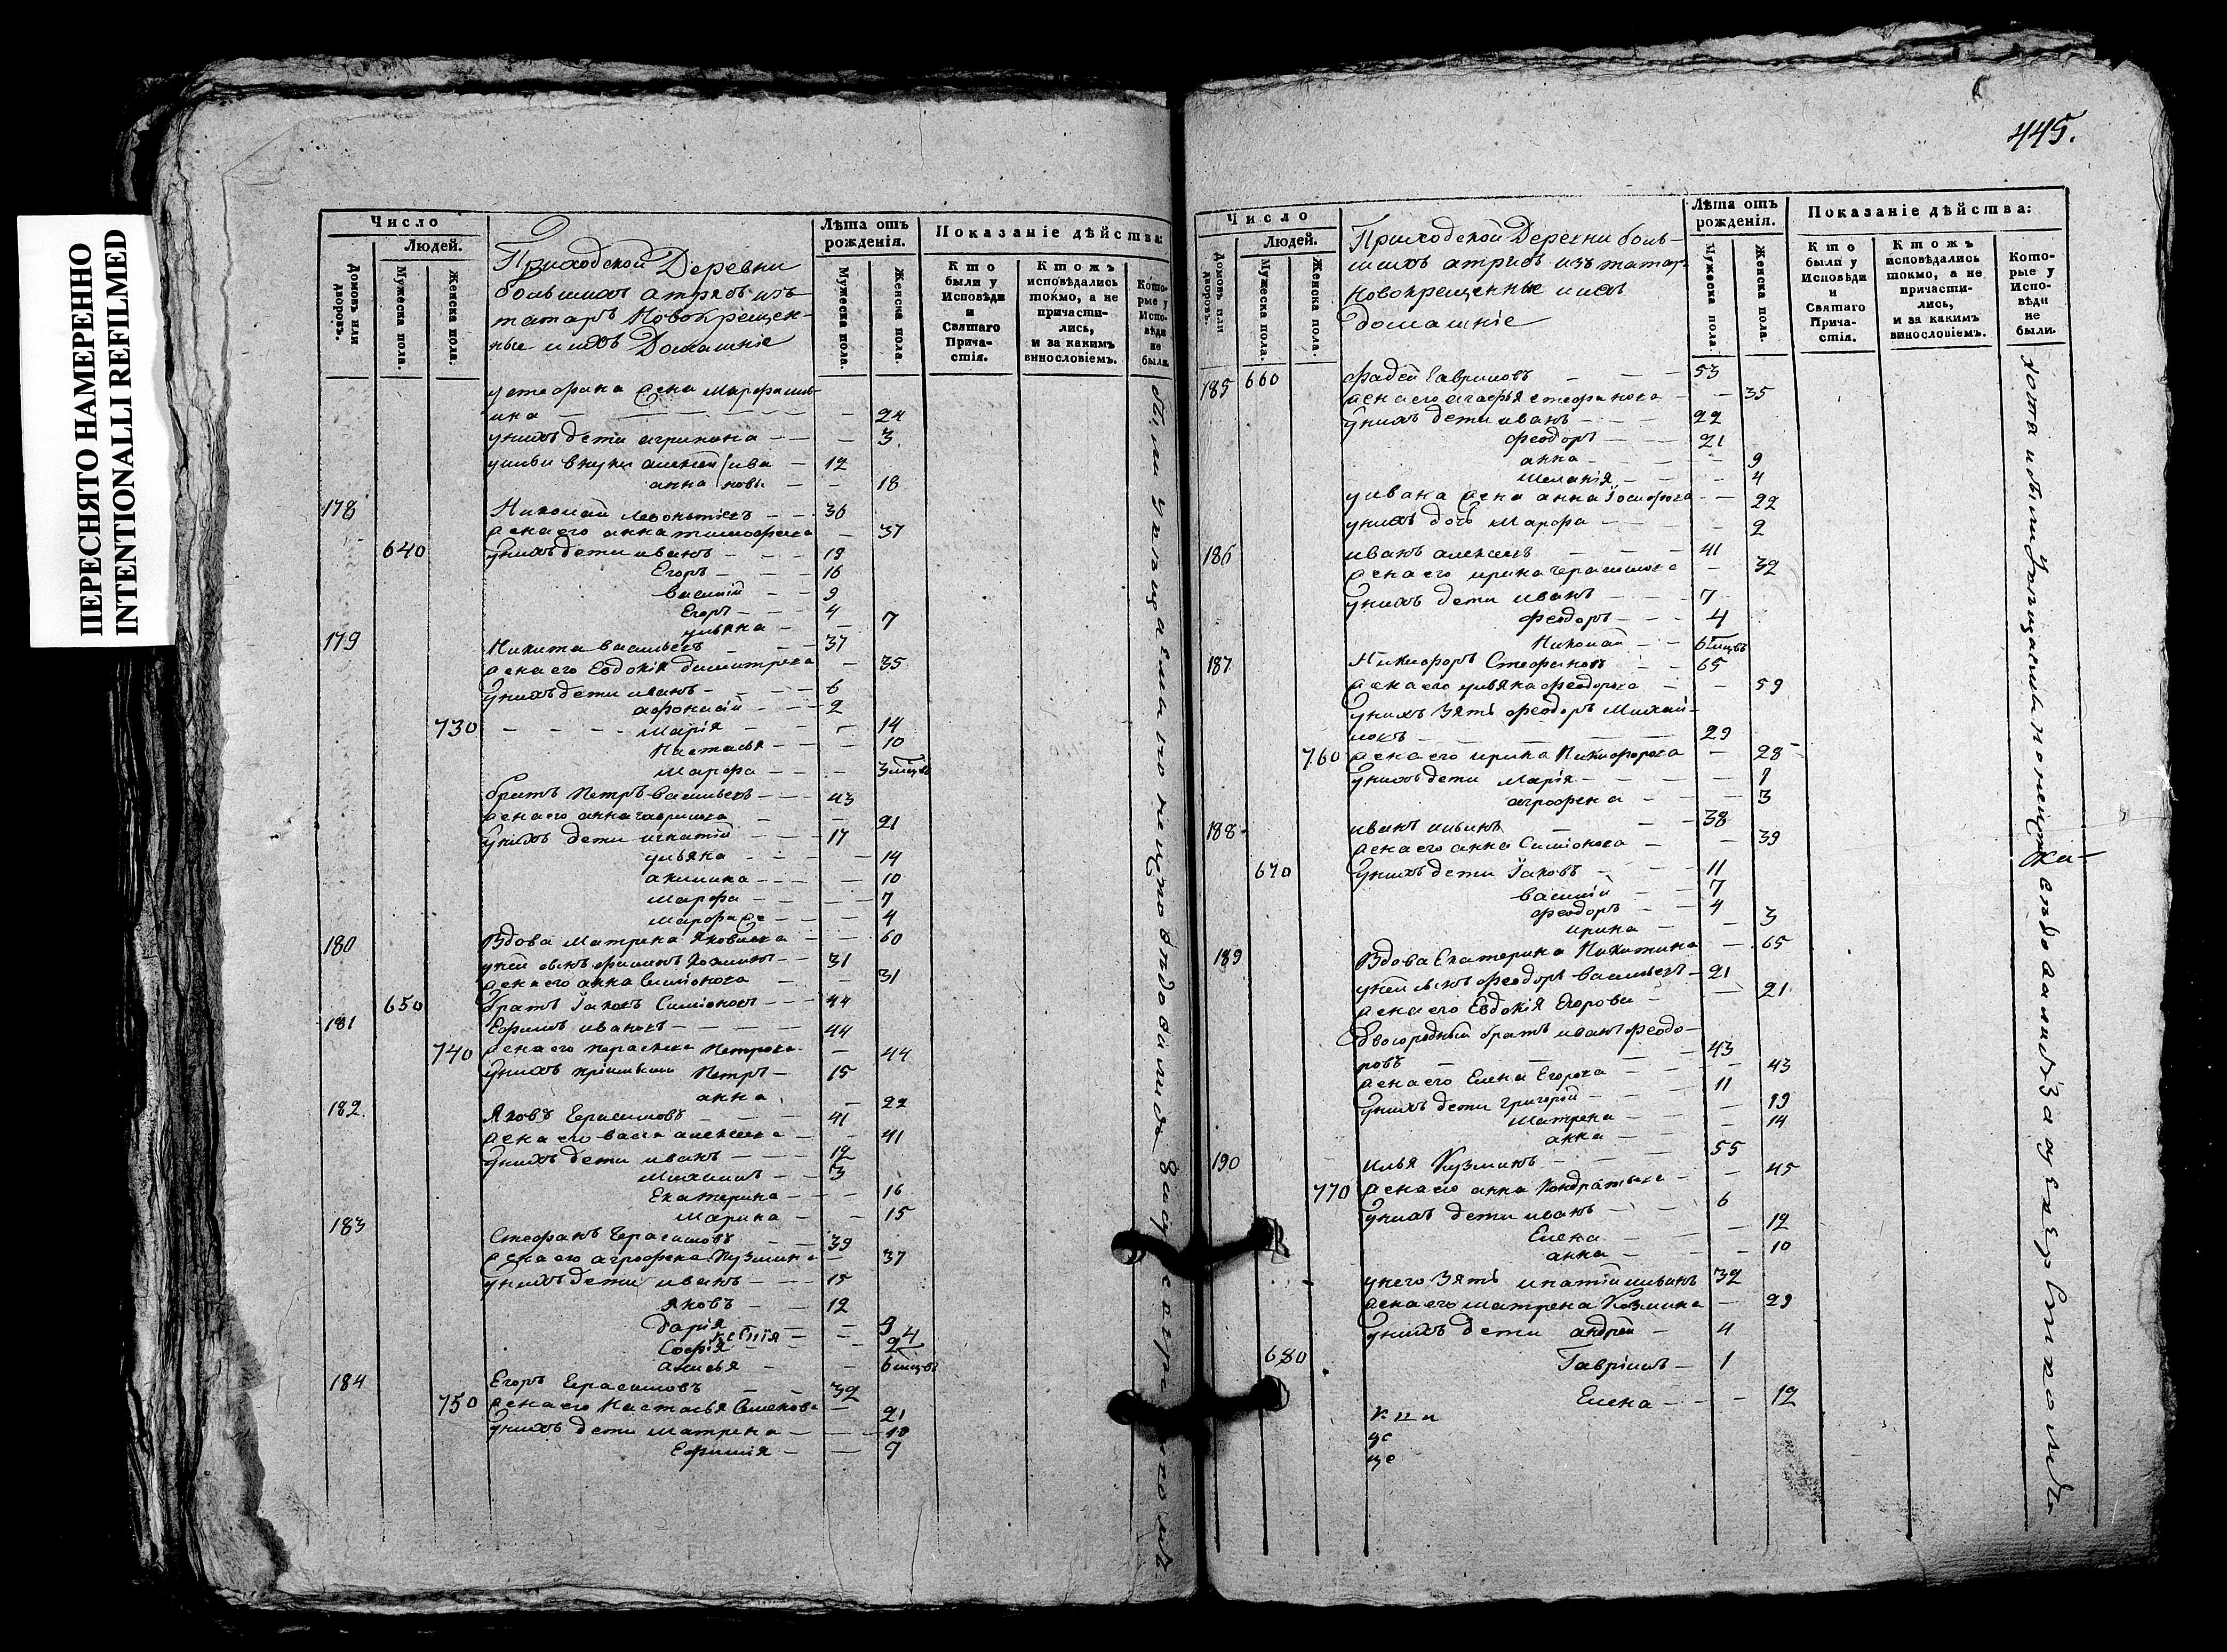 ПЕРЕСНЯТО НАМЕРЕННО
INTENTIONALLI REFILMED
Число
Людей.
Домовъ или дворовъ.
Мужеска пола.
Женска пола.
Приходской Деревни
большихъ атрясъ изъ
татаръ Новокрещен-
ные и ихъ Домашніе
Лѣта отъ рожденія.
Мужеска пола.
Женска пола.
Показаніе дѣйства:
Кто были у Исповѣди и Святаго Прича- стія.
Ктожъ исповѣдались токмо, а не причасти- лись, и за какимъ винословіемъ.
Кото- рые у Испо- вѣди не были.
у стефана жена марфа
ина — 24
унихъ дети агрипина — 3
внуки алексей 12
анна 18
178 Николай Леонтьевъ — 36
жена его анна тимофеева — 37
640 унихъ дети иванъ — 19
Егоръ — 16
василій — 9
Егоръ — 4
ульяна — 7
179 Никита васильевъ — 37
жена его Евдокія димитрева — 35
унихъ дети иванъ — 6
афонасій — 2
730 Марія — 14
Настасья — 10
Марфа — 3 мцвъ
братъ Петръ васильевъ — 43
жена его анна гаврилова — 21
унихъ дети игнатій — 17
ульяна — 14
акилина — 10
марфа — 7
марфа — 4
180 Вдова Матрена Яковлева — 60
уней сынъ филипъ Козминъ — 31
жена его анна Симіонова — 31
650 братъ Іаковъ Симіоновъ — 44
181 Ефимъ ивановъ — 44
740 жена его Парасковья Петрова — 44
унихъ Петръ — 15
анна — 22
182. Яковъ Герасимовъ — 41
жена его васса алексеева — 41
унихъ дети иванъ — 12
Михаилъ — 3
Екатерина — 16
Марина — 15
183 Стефанъ Герасимовъ — 39
жена его агрофена Кузмина — 37
унихъ дети иванъ — 15
Яковъ — 12
дарія — 9
ксенія — 4
Софія — 2
анисья — 6 мцвъ
184 Егоръ Герасимовъ — 32
750 жена его Настасья Семенова — 21
унихъ дети матрена — 10
Ефимія — 9
445.
Число
Людей.
Домовъ или дворовъ.
Мужеска пола.
Женска пола.
Приходской Деревни боль-
шихъ атрясъ изъ татаръ
новокрещенные и ихъ
домашніе
Лѣта отъ рожденія.
Мужеска пола.
Женска пола.
Показаніе дѣйства:
Кто были у Исповѣди и Святаго Прича- стія.
Ктожъ исповѣдались токмо, а не причасти- лись, и за какимъ винословіемъ.
Кото- рые у Испо- вѣди не были.
185 660 фадей Гавриловъ — 53
жена его агафья стефанова — 35
унихъ дети иванъ — 22
феодоръ — 21
анна — 9
Меланія — 4
у ивана жена анна Іосифова — 22
унихъ дочь Марфа — 2
186 иванъ алексеевъ — 41
жена его ирина герасимова — 32
унихъ дети иванъ — 7
феодоръ — 4
Николай — 6 мцвъ
187 Никифоръ Стефановъ — 65
жена его ульяна феодорова — 59
унихъ Зять феодоръ Михай-
ловъ — 29
760 жена его ирина Никифорова — 28
унихъ дети Марія — 7
агрофена — 3
188 иванъ ильинъ — 38
жена его анна Симіонова — 39
670 унихъ дети Іаковъ — 11
василій — 7
феодоръ — 4
ирина — 3
189 Вдова Екатерина Никитина — 65
уней сынъ феодоръ васильевъ — 21
жена его Евдокія Егорова — 21
двоюродный братъ иванъ феодо-
ровъ — 43
жена его Елена Егорова — 43
унихъ дети Григорій — 11
матрена — 19
анна — 14
190 илья Кузминъ — 55
770 жена его анна Кондратьева — 45
унихъ дети иванъ — 6
Елена — 12
анна — 10
унего Зять игнатій ивановъ 32
жена его матрена Козмина — 29
унихъ дети андрей — 4
680 Гавріилъ — 1
Елена — 12